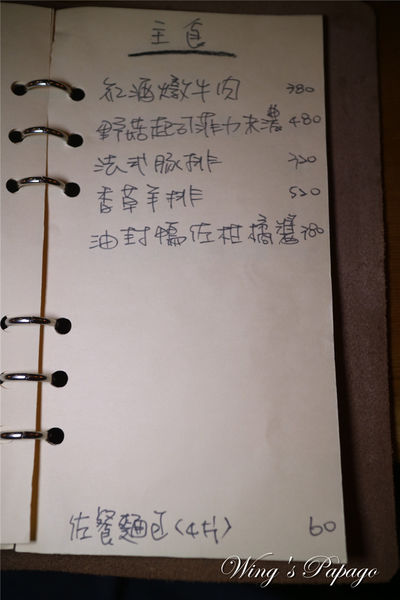 主食
紅酒燉牛肉 380
野菇起司菲力未濃 480
法式豚排 320
香草羊排 520
油封鴨佐柑橘醬 380
佐餐麵包(4片) 60
Wing's Papago